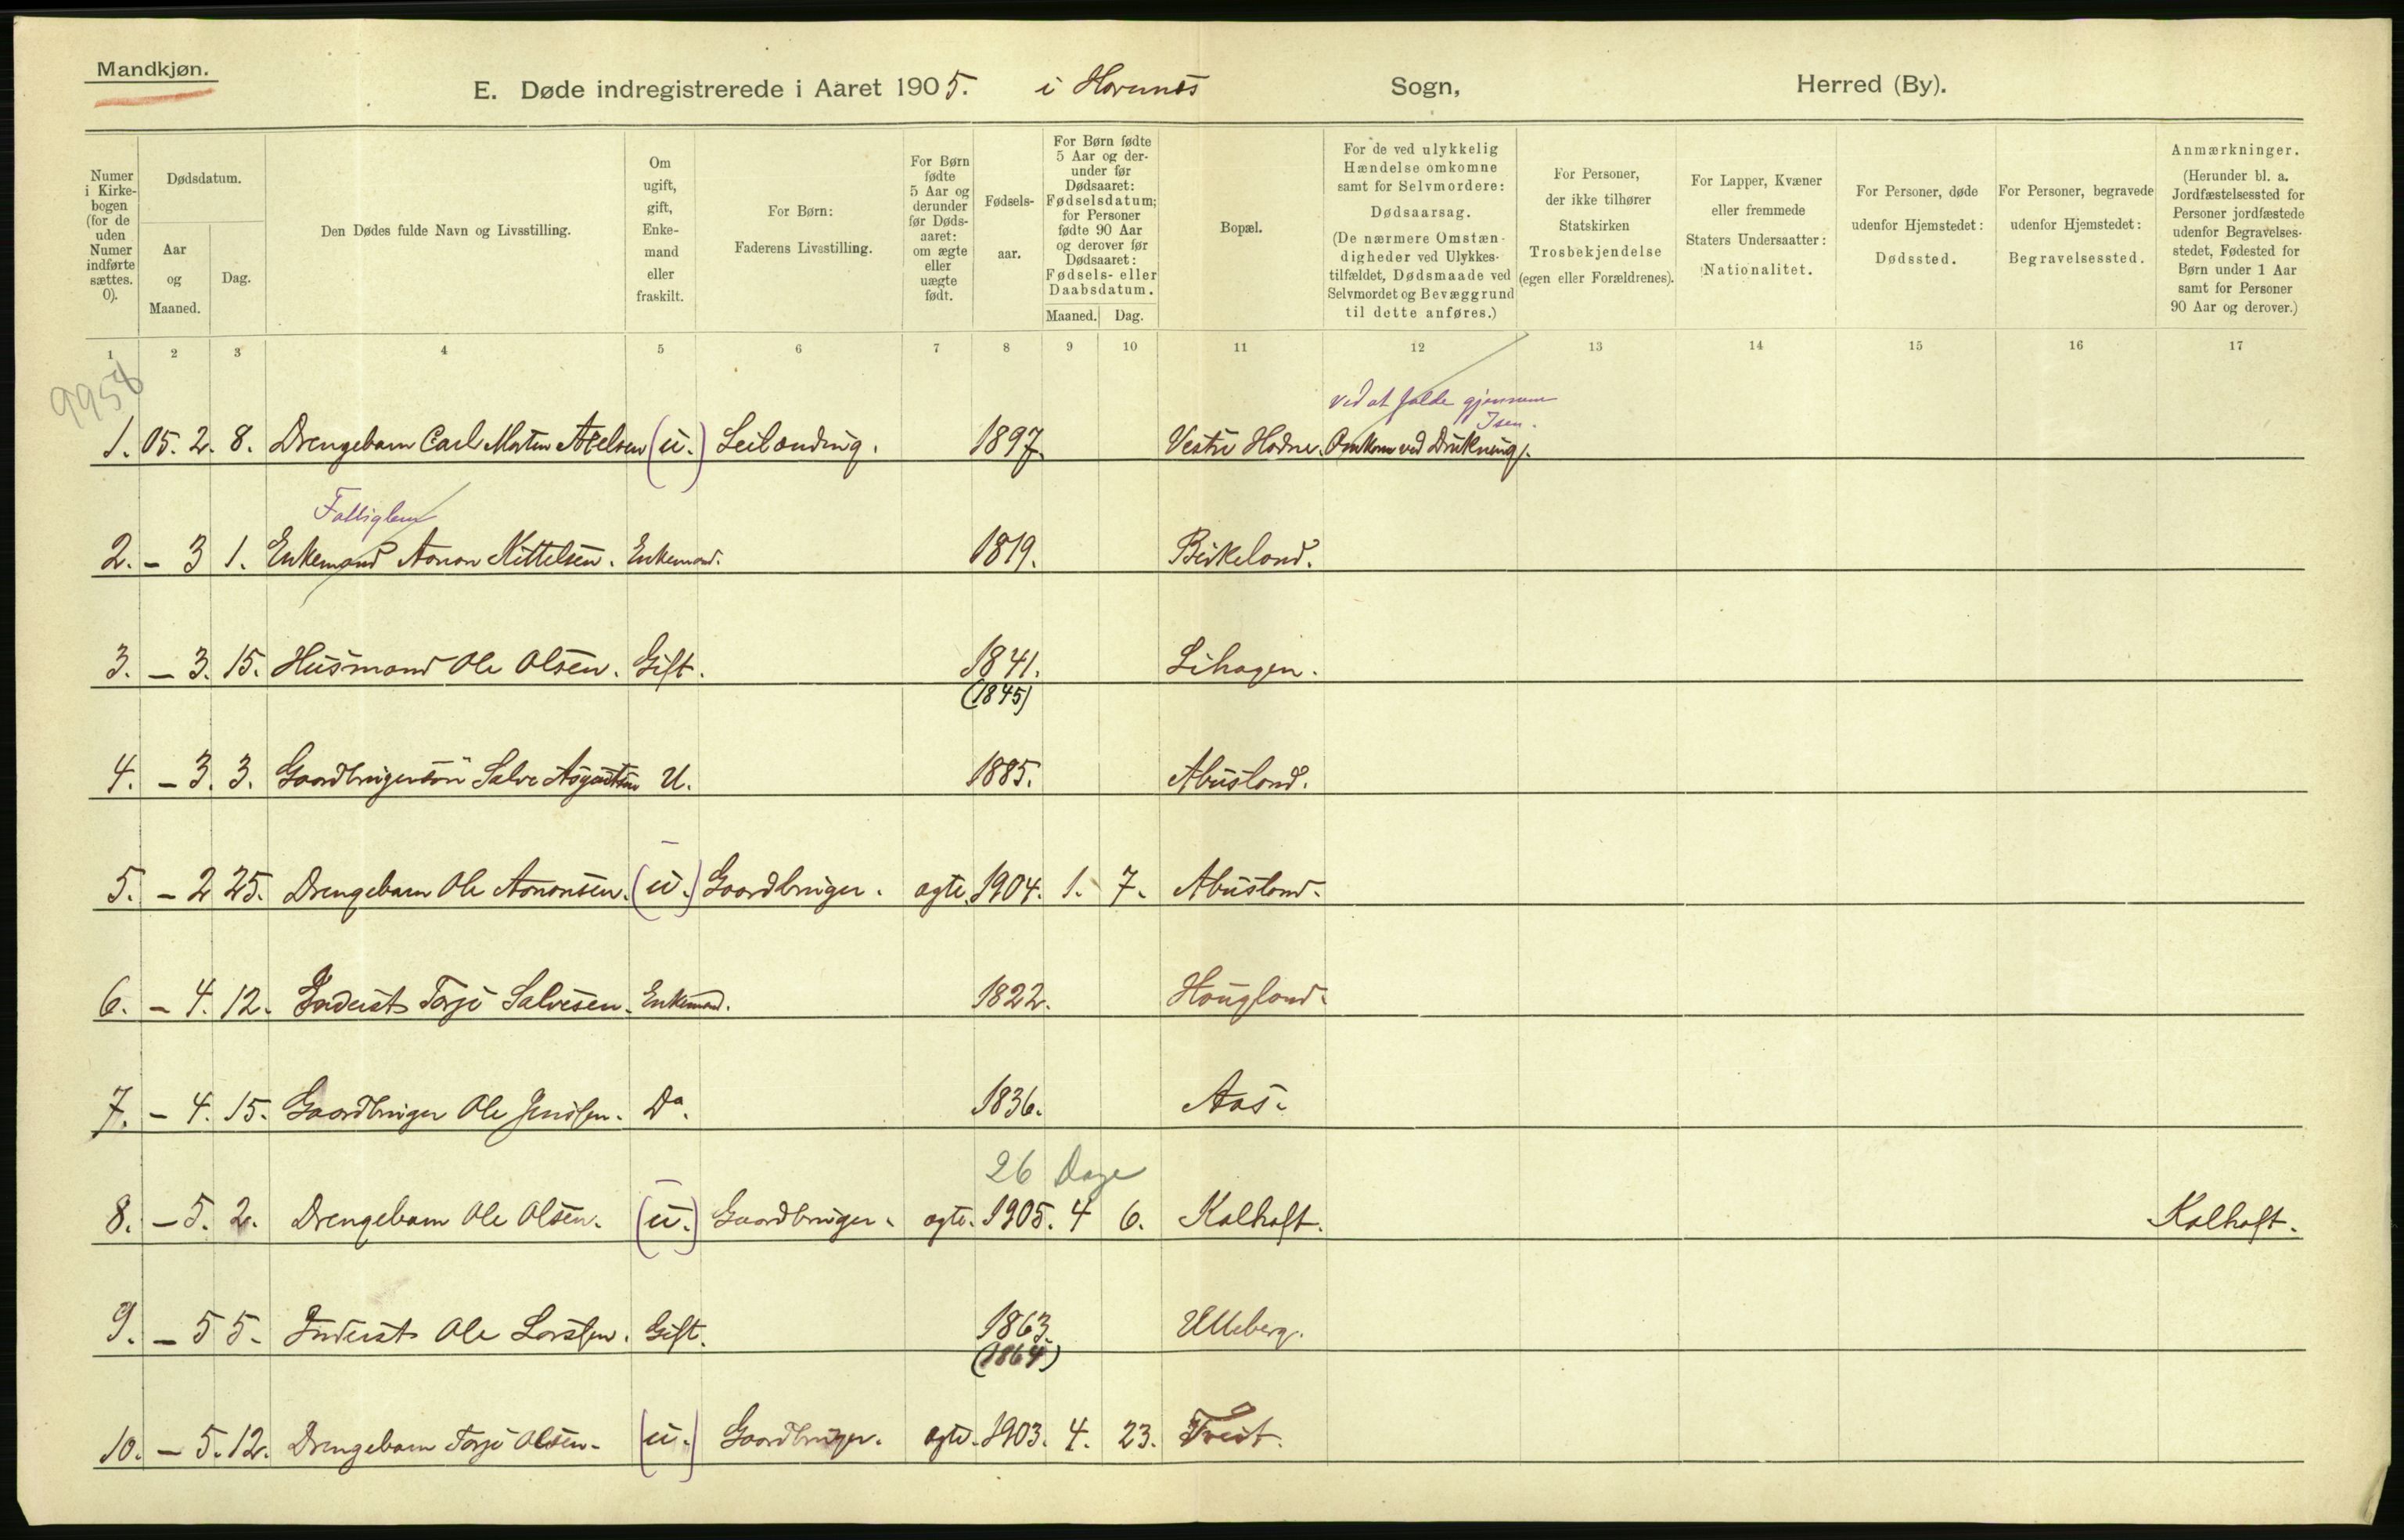 Mandkjøn.
E. Døde indregistrerede i Aaret 1905. i Hornnes Sogn, Herred (By).
Numer i Kirkebogen (for de uden Numer indførte sættes. 0).
Dødsdatum.
Aar og Maaned.
Dag.
Den Dødes fulde Navn og Livsstilling.
Om ugift, gift, Enkemand eller fraskilt.
For Børn:
Faderens Livsstilling.
For Børn fødte 5 Aar og derunder før Dødsaaret: om ægte eller uægte født.
Fødselsaar.
For Børn fødte 5 Aar og derunder før Dødsaaret: Fødselsdatum; for Personer fødte 90 Aar og derover før Dødsaaret: Fødsels- eller Daabsdatum.
Maaned. Dag.
Bopæl.
For de ved ulykkelig Hændelse omkomne samt for Selvmordere:
Dødsaarsag.
(De nærmere Omstændigheder ved Ulykkestilfældet, Dødsmaade ved Selvmordet og Bevæggrund til dette anføres.)
For Personer, der ikke tilhører Statskirken
Trosbekjendelse
(egen eller Forældrenes).
For Lapper, Kvæner eller fremmede Staters Undersaatter:
Nationalitet.
For Personer, døde udenfor Hjemstedet:
Dødssted.
For Personer, begravede udenfor Hjemstedet:
Begravelsessted.
Anmærkninger.
(Herunder bl. a. Jordfæstelsessted for Personer jordfæstede udenfor Begravelsesstedet, Fødested for Børn under 1 Aar samt for Personer 90 Aar og derover.)
1 2 3 4 5 6 7 8 9 10 11 12 13 14 15 16 17
ved at falde gjennem
Isen.
1. 05. 2. 8. Drengebarn Carl Martin Axelsen (u.) Leilænding. 1897. Vestre Hodne. Omkom ved Drukning.
Fattiglem
2. - 3 1. Enkemand Aanon Kittelsen. Enkemand. 1819. Birkeland.
3. - 3. 15. Husmand Ole Olsen. Gift. 1841. Lihagen.
(1845)
4. - 3. 3. Gaardbrugersøn Salve Asgautsen U. 1885. Abusland.
5. - 2 25. Drengebarn Ole Aanonsen. (u.) Gaardbruger. ægte. 1904. 1. 7. Abusland.
6. - 4. 12. Inderst Torje Salvesen. Enkemand. 1822. Hougland.
7. - 4. 15. Gaardbruger Ole Jenssen. Do. 1836. Aas.
26 Dage
8. - 5. 2. Drengebarn Ole Olsen. (u.) Gaardbruger. ægte. 1905. 4 6. Kalhaft. Kalhaft.
9. - 5 5. Inderst Ole Larssen. Gift. 1863. Uleberg.
(1864)
10. - 5. 12. Drengebarn Torje Olsen. (u.) Gaardbruger. ægte. 1903. 4. 23. Tveit.